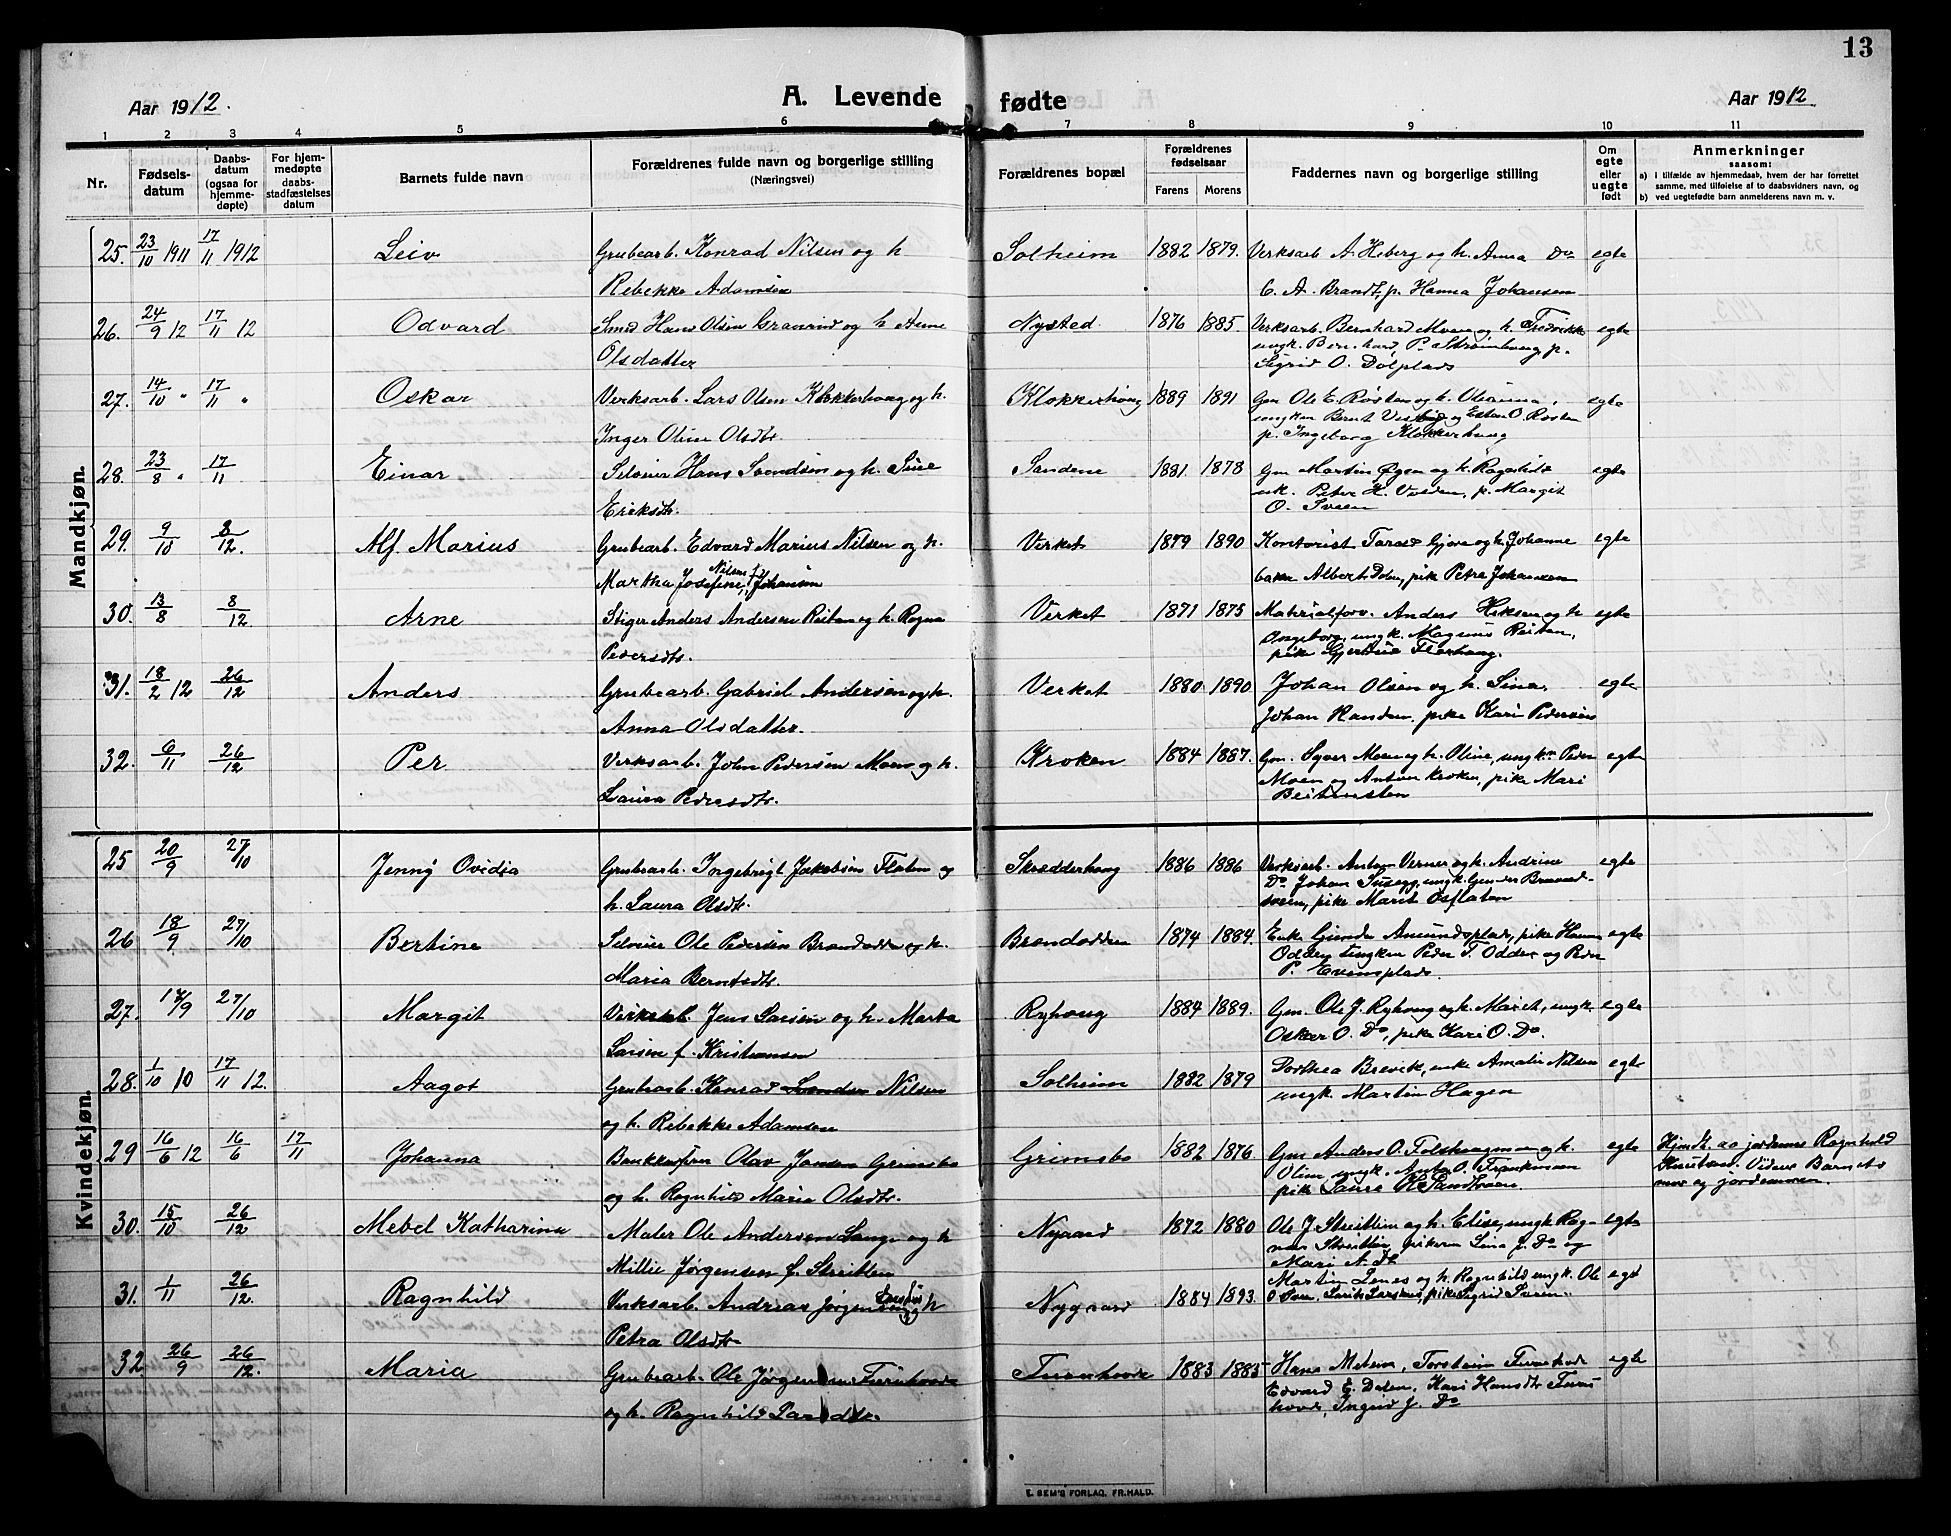 13
Aar 1912.
A. Levende fødte
Aar 1912
1 2 3 4 5 6 7 8 9 10 11
Nr.
Fødsels-
datum
Daabs-
datum
(ogsaa for
hjemme-
døpte)
For hjem-
medøpte
daabs-
stadfæstelses
datum
Barnets fulde navn
Forældrenes fulde navn og borgerlige stilling
(Næringsvei)
Forældrenes bopæl
Forældrenes
fødselsaar
Farens Morens
Faddernes navn og borgerlige stilling
Om
egte
eller
uegte
født
Anmerkninger
saasom:
a) i tilfælde av hjemmedaab, hvem der har forrettet
samme, med tilføielse af to daabsvidners navn, og
b) ved uegtefødte barn anmelderens navn m. v.
Mandkjøn.
25. 23/10 1911 17/11 1912 Leiv Grubearb. Konrad Nilsen og h Solheim 1882 1879. Verksarb A. Heberg og h. Anna Do egte
Rebekke Adamsen C. A. Brandt, p. Hanna Johansen
26. 24/9 12 17/11 12 Odvard Smed Hans Olsen og h Nysted. 1876 1885. Verksarb. Bernhard Moen og h. Fredrikke egte
Olsdatter ungk. Bernhard P. Strømhaug p.
Sigrid O. Dølplads
27. 14/10 " 17/11 " Oskar Verksarb. Lars Olsen Klokkerhaug og h. Klokkerhaug 1889 1891 Gm Ole E. Røsten og h. Oleanna, egte
Inger Oline Olsdtr. ungken Bernt og Esten O. Rosten
p. Ingeborg Klokkerhaug
28. 23/8 " 17/11 Einar Hans Svendsen og h. Sine Sandene 1881. 1878 Gm Martin Øgen og h. Ragnhild egte
Eriksdtr. uk. Peter H. Volden, p. Margit
O. Sveen
29. 9/10 8/12. Alf Marius Grubearb. Edvard Marius Nilsen og h. Verket 1879 1890 Kontorist Gjøre og h. Johanne egte
Martha Josefine Nilsen f. Johansen baker Albert Dolen, pik Petra Johansen
30. 13/8 8/12 Arne Stiger Anders Andersen Reitan og h. Ragna Verket 1871 1875 Materialforv. Anders og h egte
Pedersdtr. Ingeborg, ungk. Magnus Reitan,
pike Gjertrud Florhaug.
31. 18/2 12 26/12 Anders Grubearb. Gabriel Andersen og h. Verket 1880 1890 Johan Olsen og h. Sina, egte
Anna Olsdatter. Johan Randen, pike Kari Pedersen
32. 6/11 26/12 Per Verksarb. John Pedersen Moen og h. Kroken 1884 1887. Gm. Syver Moen og h. Oline, ungkn Peder egte
Laura Pedersdtr. Moen og Anton Kroken, pike Mari
Kvindekjøn.
25 20/9 27/10 Jenny Ovidia Grubearb. Ingebrigt Jakobsen Floten og Skrædderhaug 1886 1886 Verksarb. Anton Verner og h. Andrine egte
h. Laura Olsdtr. Do Johan Tusegg, ungk.
sveen, pike Marit Osfloten
26 18/9 27/10 Bertine Ole Pedersen Brandodden og h. Brandodden 1874 1884. Enke Gunda Amundsplads, pike Hanna egte
Maria Berntsdtr. Odden, ungken Peder T. Odden og Peder
P. Evensplads.
27. 17/9 27/10 Margit Verksarb. Jens Larsen og h. Marta Ryhaug 1884 1889. Gm. Ole J. Ryhaug og h. Marit, ungk. egte
Larsen f. Kristiansen Oskar O. Do, pike Kari O. Do
28. 1/10 10 17/11 12. Aagot Grubearb. Konrad Nilsen Solheim 1882 1879 Dorthea Brevik, enke Amalie Nilsen egte
og h. Rebekke Adamsen ungk. Martin Hagen
29 16/6 12 16/6 17/11 Johanna Olav Jansen Grimsbo Grimsbo 1882 1876 Gm Anders O. og h. egte Hjmdt. av jordemor Ragnhild
og h. Ragnhild Maria Olsdtr. Oline, ungk. Anton O. Knutsen. Vidner Barnets
pike Laura H. Sandtrøen. mor og jordemoren.
30. 15/10 26/12 Mebel Katharina Maler Ole Andersen Lange og h Nygaard 1872 1880 Ole J Streitlien og h. Elise, ungk Rag- egte
Millie Jørgensen f. Streitlien nar Streitlien, pikerne Lina J. Do og
Mari N. Do
31. 1/11 26/12. Ragnhild Verksarb. Andreas Jørgensen og h Nygaard 1884 1893. Martin Lenes og h. Ragnhild ungk. Ole egt
Petra Olsdtr O Sveen, pike Sigrid
32 26/9 26/12. Maria Grubearb. Ole Jørgensen Furuhovde Furuhovde 1883 1885 Hans Moen, Torstein Furuhovde egte
og h. Ragnhild Edvard E. Dølen, Kari Hansdtr Furu
hovde, Ingrid J. Do
E. SEM'S FORLAG, FR.HALD.